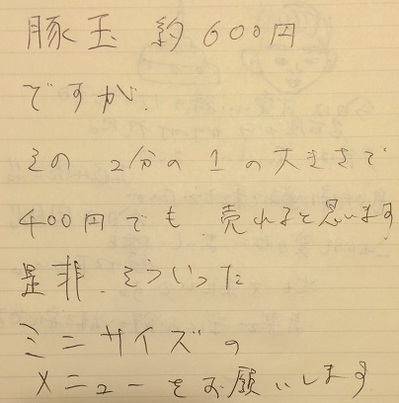 豚玉 約600円
ですが、
その 2分の1の大きさで
400円でも 売れると思います
是非、そういった
ミニサイズの
メニューをお願いします